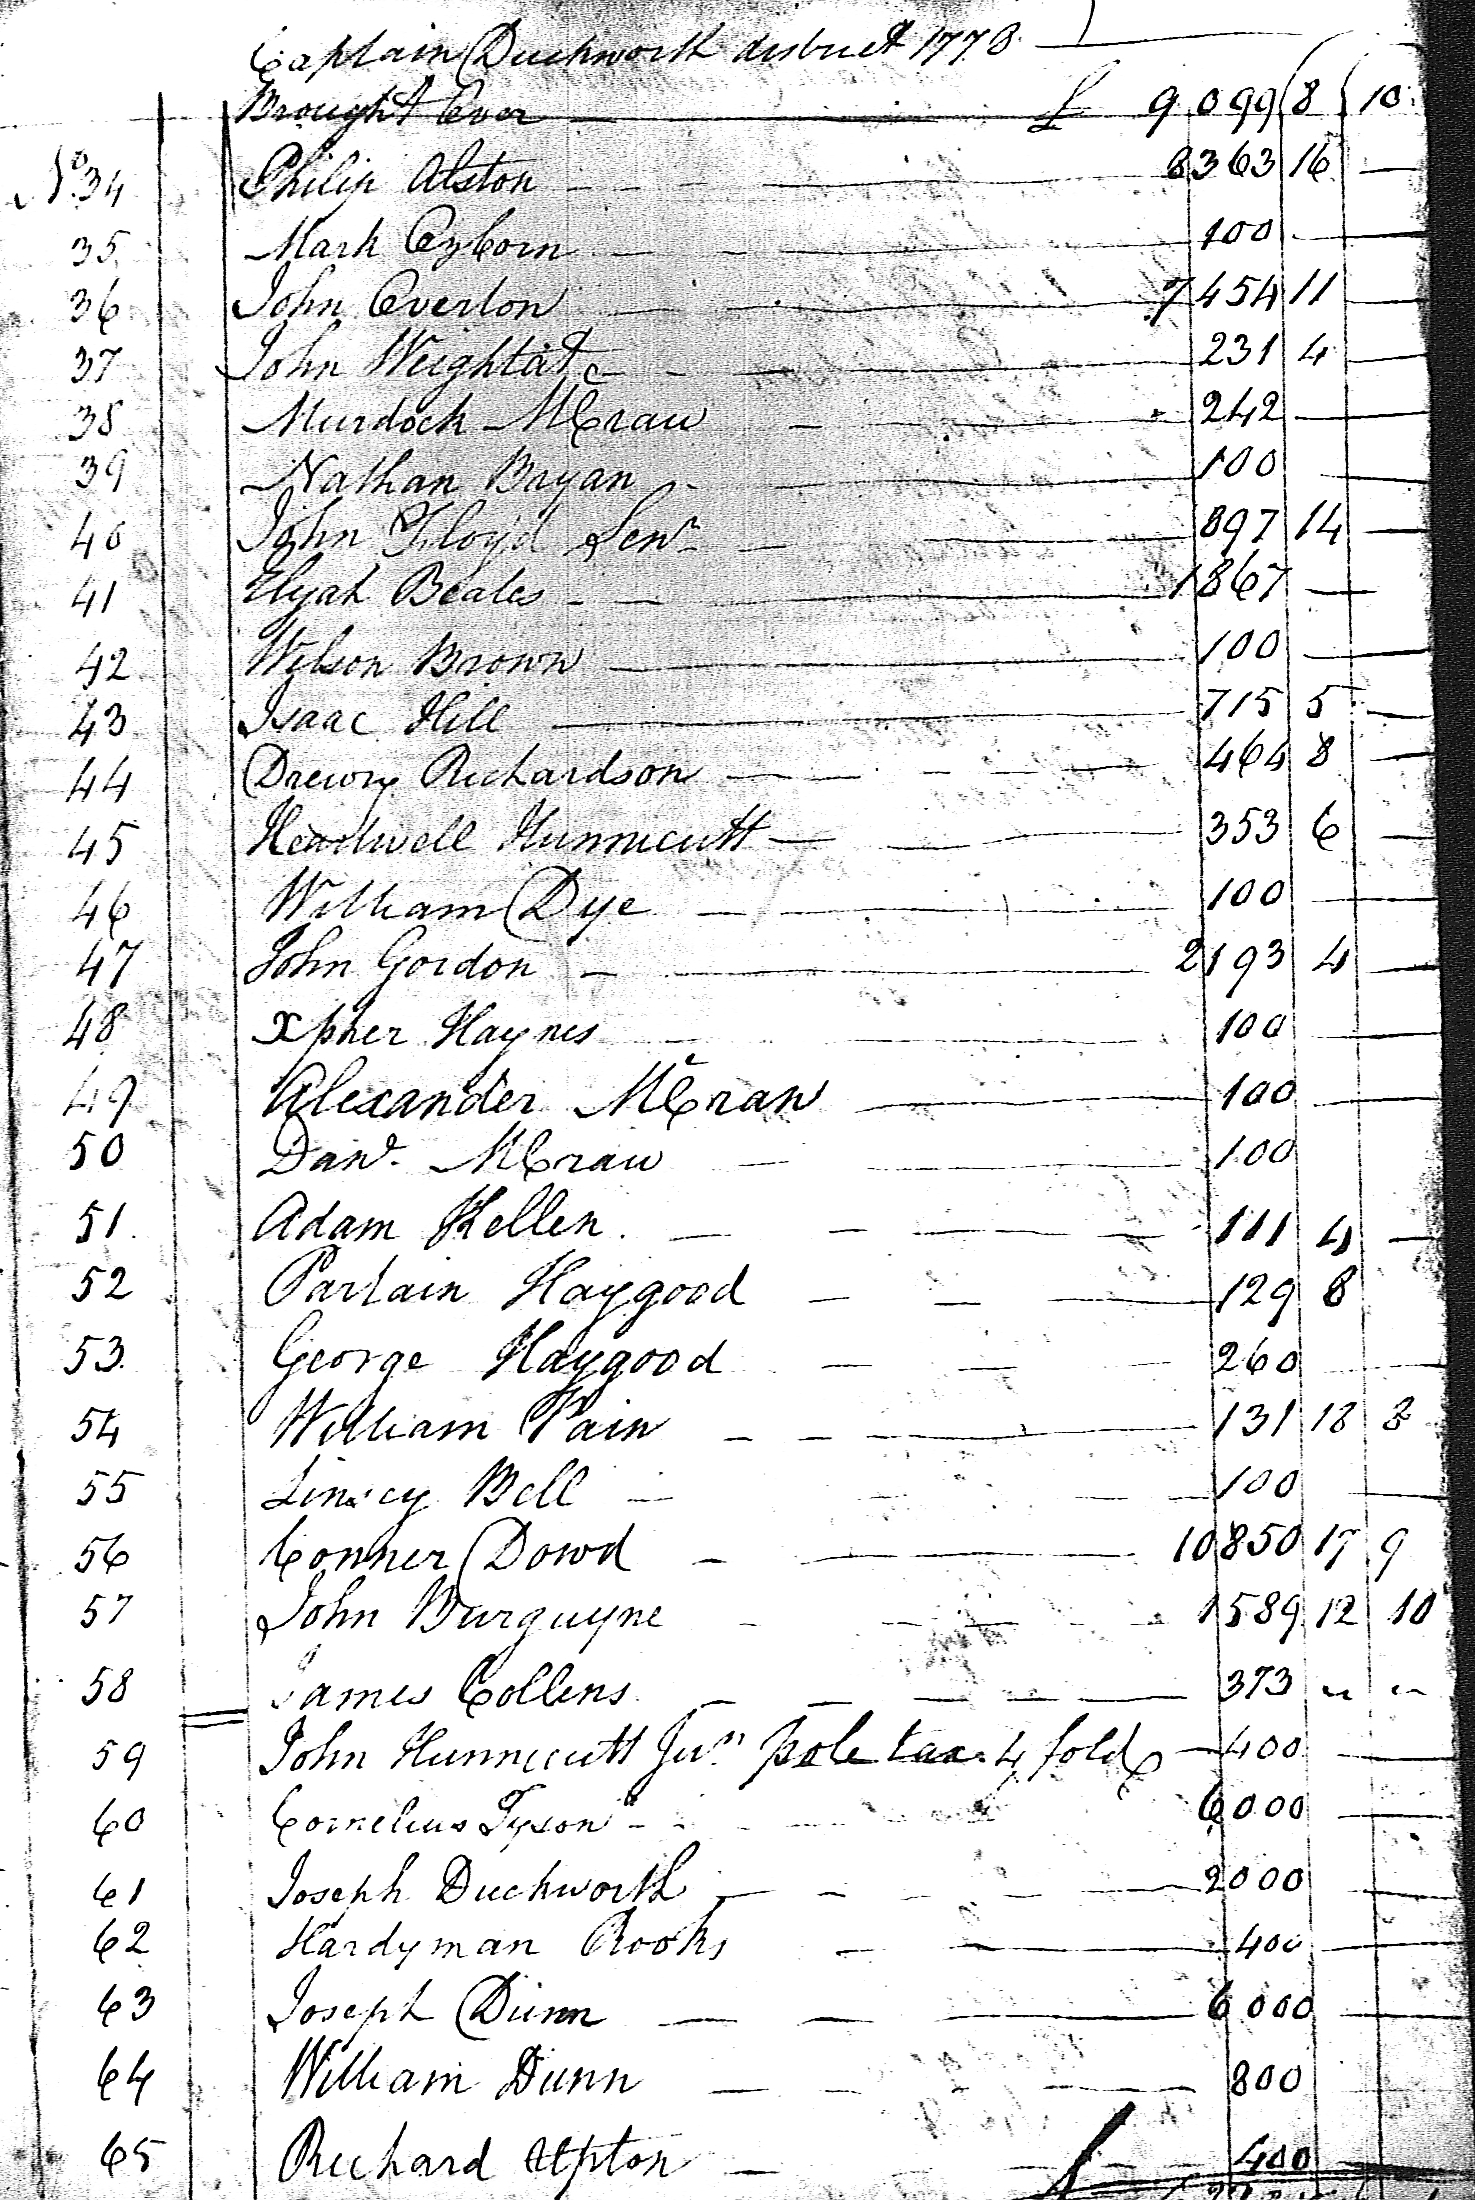 Captain Duckworth district 1778
Brought Over £ 9099 8 10
No. 34 Philip Alston 8363 16
35 Mark Ozborn 100
36 John Overton 7454 11
37 John Weightat 231 4
38 Murdock McCraw 242
39 Nathan Bryan 100
40 John Floyd Senr 897 14
41 Elijah Beales 1867
42 Wilson Brown 100
43 Isaac Hill 715 5
44 Drewry Richardson 464 8
45 Heartwell Hunnicutt 353 6
46 William Dye 100
47 John Gordon 2193 4
48 Xpher Haynes 100
49 Alexander McCraw 100
50 Danl. McCraw 100
51 Adam Kellen 111 4
52 Partain Haygood 129 8
53 George Haygood 260
54 William Pain 131 18 8
55 Linsey Bell 100
56 Conner Dowd 10850 17 9
57 John Burguyne 1589 12 10
58 James Collens 373 " "
59 John Hunnicutt Junr pole tax 4 fold 400
60 Cornelius Tyson 6000
61 Joseph Duckworth 2000
62 Hardyman Rooks 400
63 Joseph Dunn 6000
64 William Dunn 800
65 Richard Upton 400